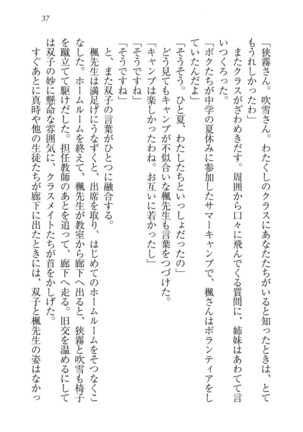 37
「狭霧さん。吹雪さん。わたくしのクラスにあなたたちがいると知ったときは、とて
もうれしかったわ」
またクラスがざわめきだす。周囲から口々に飛んでくる質問に、姉妹はあわてて言
いつくろった。
「ボクたちが中学の夏休みに参加したサマーキャンプで、楓さんはボランティアをし
ていたんだ」
「そうそう。ひと夏、わたしたちといっしょだったの」
どう見てもキャンプが不似合いな楓先生も言葉をつづけた。
「キャンプは楽しかったわね。お互いに若かったし」
「そうですね」
「そうですね」
また、双子の言葉がひとつに融合する。
楓先生は満足げにうなずくと、出席を取り、はじめてのホームルームをそつなくこ
なした。ホームルームを終えて、楓先生が教室から廊下へ出ると、狭霧と吹雪も椅子
を蹴立てて駆けだした。担任教師のあとを追って、廊下へ走る。旧交を温めるにして
は双子の妙に懸命な雰囲気に、クラスメイトたちが首をかしげた。
すぐあとに真時や他の生徒たちが廊下に出たときには、双子と楓先生の姿はなかっ